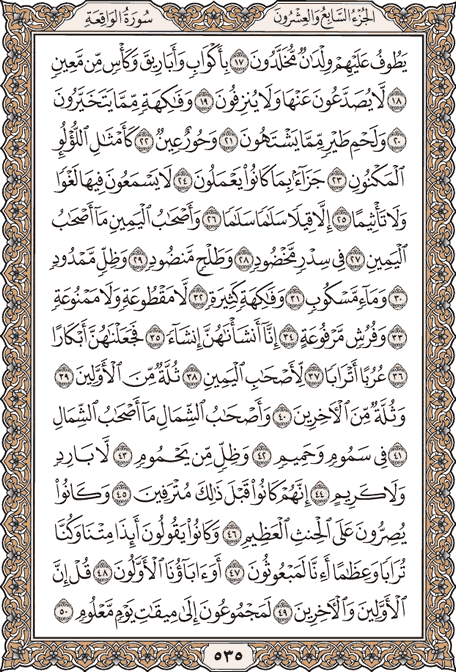 الجزء السابع والعشرون
سورة الواقعة
يَطُوفُ عَلَيْهِمْ وِلْدَٰنٌ مُّخَلَّدُونَ ١٧ بِأَكْوَابٍ وَأَبَارِيقَ وَكَأْسٍ مِّن مَّعِينٍ
١٨ لَّا يُصَدَّعُونَ عَنْهَا وَلَا يُنزِفُونَ ١٩ وَفَٰكِهَةٍ مِّمَّا يَتَخَيَّرُونَ
٢٠ وَلَحْمِ طَيْرٍ مِّمَّا يَشْتَهُونَ ٢١ وَحُورٌ عِينٌ ٢٢ كَأَمْثَٰلِ ٱللُّؤْلُوِٕ
ٱلْمَكْنُونِ ٢٣ جَزَآءًۢ بِمَا كَانُوا۟ يَعْمَلُونَ ٢٤ لَا يَسْمَعُونَ فِيهَا لَغْوًا
وَلَا تَأْثِيمًا ٢٥ إِلَّا قِيلًا سَلَٰمًا سَلَٰمًا ٢٦ وَأَصْحَٰبُ ٱلْيَمِينِ مَآ أَصْحَٰبُ
ٱلْيَمِينِ ٢٧ فِى سِدْرٍ مَّخْضُودٍ ٢٨ وَطَلْحٍ مَّنضُودٍ ٢٩ وَظِلٍّ مَّمْدُودٍ
٣٠ وَمَآءٍ مَّسْكُوبٍ ٣١ وَفَٰكِهَةٍ كَثِيرَةٍ ٣٢ لَّا مَقْطُوعَةٍ وَلَا مَمْنُوعَةٍ
٣٣ وَفُرُشٍ مَّرْفُوعَةٍ ٣٤ إِنَّآ أَنشَأْنَٰهُنَّ إِنشَآءً ٣٥ فَجَعَلْنَٰهُنَّ أَبْكَارًا
٣٦ عُرُبًا أَتْرَابًا ٣٧ لِّأَصْحَٰبِ ٱلْيَمِينِ ٣٨ ثُلَّةٌ مِّنَ ٱلْأَوَّلِينَ ٣٩
وَثُلَّةٌ مِّنَ ٱلْءَاخِرِينَ ٤٠ وَأَصْحَٰبُ ٱلشِّمَالِ مَآ أَصْحَٰبُ ٱلشِّمَالِ
٤١ فِى سَمُومٍ وَحَمِيمٍ ٤٢ وَظِلٍّ مِّن يَحْمُومٍ ٤٣ لَّا بَارِدٍ
وَلَا كَرِيمٍ ٤٤ إِنَّهُمْ كَانُوا۟ قَبْلَ ذَٰلِكَ مُتْرَفِينَ ٤٥ وَكَانُوا۟
يُصِرُّونَ عَلَى ٱلْحِنثِ ٱلْعَظِيمِ ٤٦ وَكَانُوا۟ يَقُولُونَ أَئِذَا مِتْنَا وَكُنَّا
تُرَابًا وَعِظَٰمًا أَءِنَّا لَمَبْعُوثُونَ ٤٧ أَوَءَابَآؤُنَا ٱلْأَوَّلُونَ ٤٨ قُلْ إِنَّ
ٱلْأَوَّلِينَ وَٱلْءَاخِرِينَ ٤٩ لَمَجْمُوعُونَ إِلَىٰ مِيقَٰتِ يَوْمٍ مَّعْلُومٍ ٥٠
٥٣٥